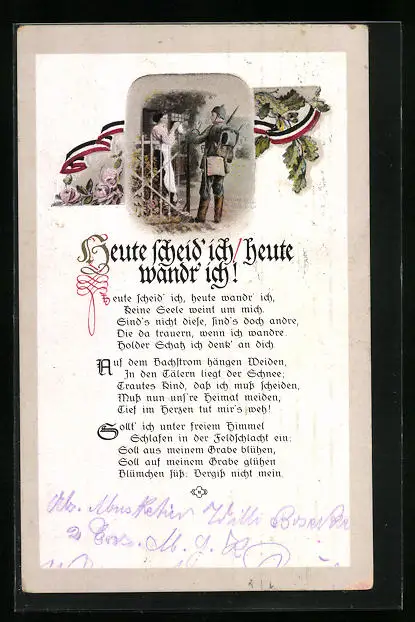 Heute scheid' ich, heute
wandr' ich!
Heute scheid' ich, heute wandr' ich,
Keine Seele weint um mich.
Sind's nicht diese, sind's doch andre,
Die da trauern, wenn ich wandre.
Holder Schatz ich denk' an dich
Auf dem Bachstrom hängen Weiden,
In den Tälern liegt der Schnee;
Trautes Kind, daß ich muß scheiden,
Muß nun uns're Heimat meiden,
Tief im Herzen tut mir's weh!
Sollt' ich unter freiem Himmel
Schlafen in der Feldschlacht ein:
Soll aus meinem Grabe blühen,
Soll auf meinem Grabe glühen
Blümchen süß: Vergiß nicht mein.
Musketier Willi
2